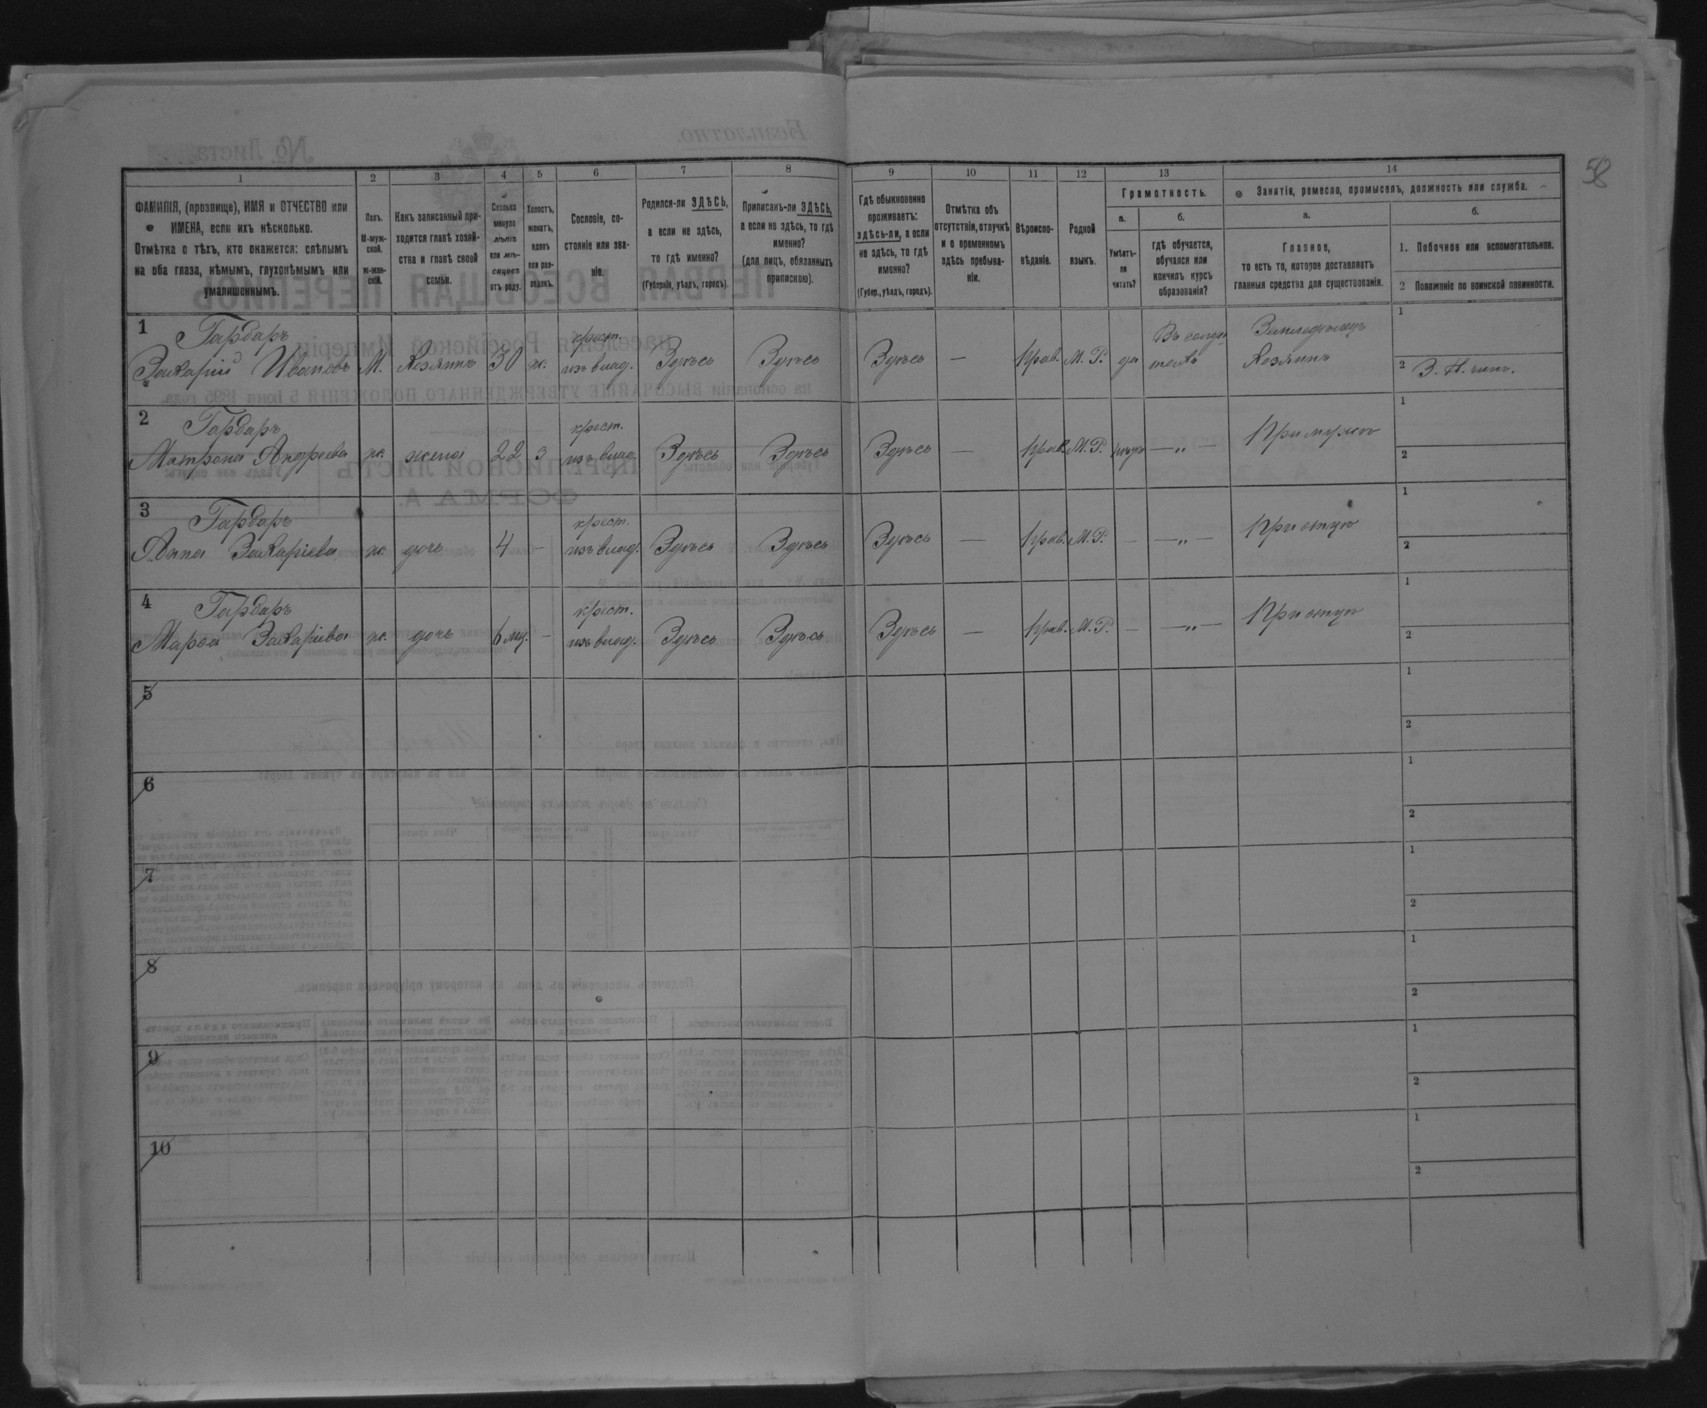 58
1 2 3 4 5 6 7 8 9 10 11 12 13 14
ФАМИЛІЯ, (прозвище), ИМЯ и ОТЧЕСТВО или
ИМЕНА, если ихъ нѣсколько.
Отмѣтка о тѣхъ, кто окажется: слѣпымъ
на оба глаза, нѣмымъ, глухонѣмымъ или
умалишеннымъ.
Полъ.
М-муж-
ской.
ж-жен-
скій.
Какъ записанный при-
ходится главѣ хозяй-
ства и главѣ своей
семьи.
Сколько
минуло
лѣтъ
или мѣ-
сяцевъ
отъ роду.
Холостъ,
женатъ,
вдовъ
или раз-
веденъ.
Сословіе, со-
стояніе или зва-
ніе.
Родился-ли ЗДѢСЬ,
а если не здѣсь,
то гдѣ именно?
(Губернія, уѣздъ, городъ).
Приписанъ-ли ЗДѢСЬ,
а если не здѣсь, то гдѣ
именно?
(для лицъ, обязанныхъ
припискою).
Гдѣ обыкновенно
проживаетъ:
здѣсь-ли, а если
не здѣсь, то гдѣ
именно?
(Губер., уѣздъ, городъ).
Отмѣтка объ
отсутствіи, отлучкѣ
и о временномъ
здѣсь пребыва-
ніи.
Вѣроиспо-
вѣданіе.
Родной
языкъ.
Грамотность.
а.
Умѣетъ-
ли
читать?
б.
гдѣ обучается,
обучался или
кончилъ курсъ
образованія?
Занятіе, ремесло, промыселъ, должность или служба.
а.
Главное,
то есть то, которое доставляетъ
главныя средства для существованія.
б.
1. Побочное или вспомогательное.
2 Положеніе по воинской повинности.
1 Гардаръ крест. Въ солда Земледѣлецъ 1
Захарій Ивановъ М. Хозяинъ 30 ж. изъ влад. Здѣсь Здѣсь Здѣсь — Прав. М. Р. да тахъ Хозяинъ 2
2 Гардаръ крест. 1
Матрена Андреева ж. жена 22 з изъ влад. Здѣсь Здѣсь Здѣсь — Прав. М. Р. нѣтъ — „ — При мужѣ 2
3 Гардаръ крест. 1
Анна Захаріева ж. дочь 4 – изъ влад. Здѣсь Здѣсь Здѣсь — Прав. М. Р. – — „ — При отцѣ 2
4 Гардаръ крест. 1
Марѳа Захаріева ж. дочь 6 мц. – изъ влад. Здѣсь Здѣсь Здѣсь — Прав. М. Р. – — „ — При отцѣ 2
5 1
2
6 1
2
7 1
2
8 1
2
9 1
2
10 1
2